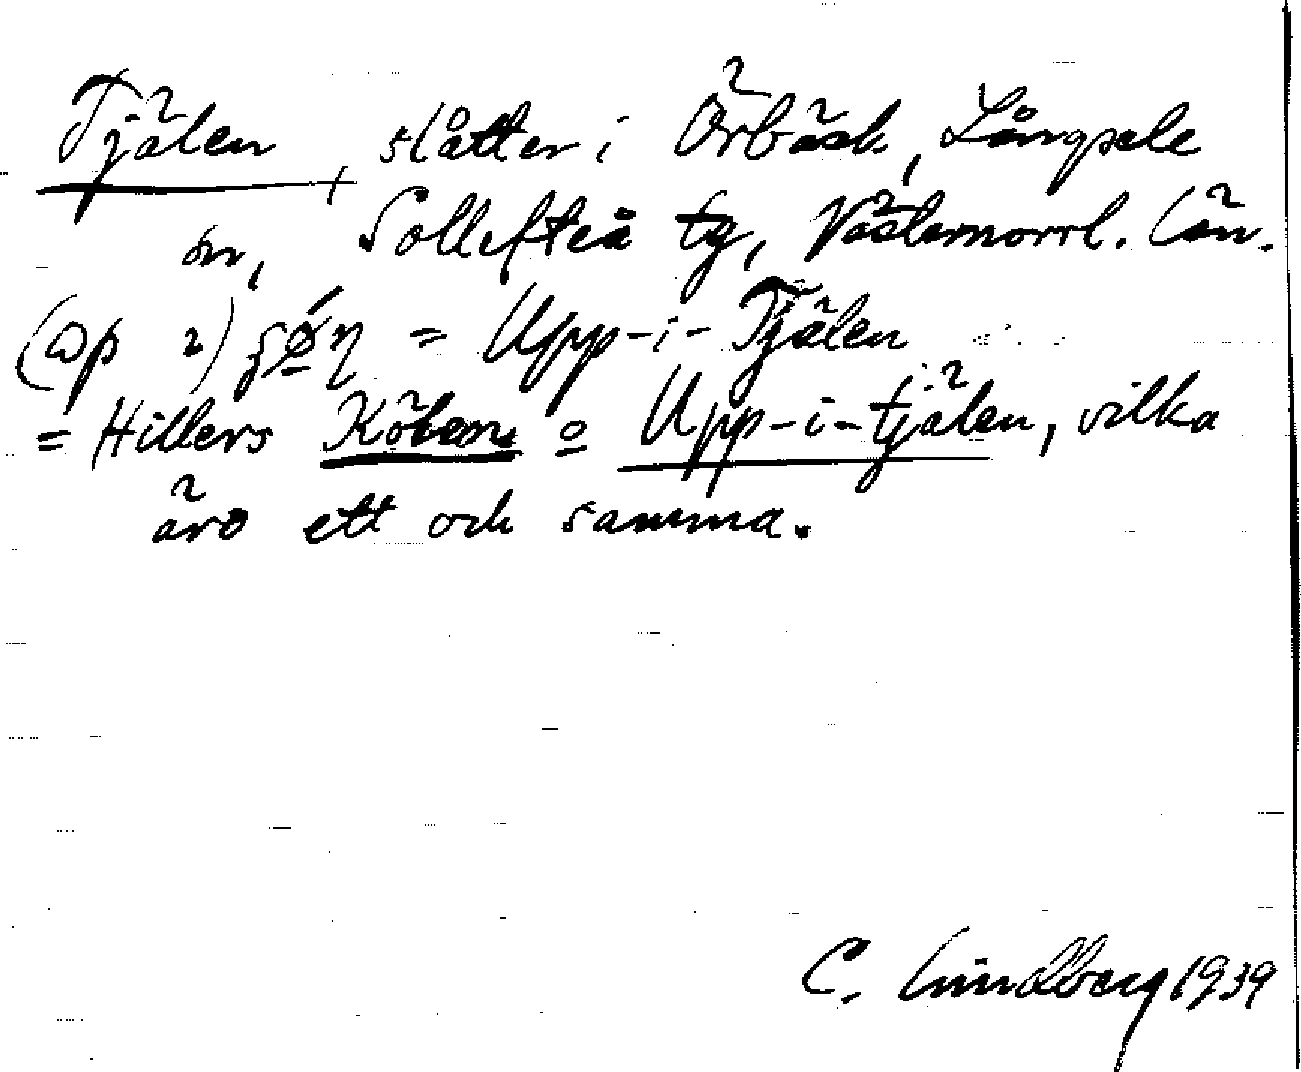 Tjälen, slåtter i Örbäck, Långsele
sn, Sollefteå tg, Västernorrl. län.
= Upp-i-Tjälen
= Hillers o Upp-i-tjälen, vilka
äro ett och samma.
C. Lindberg 1939